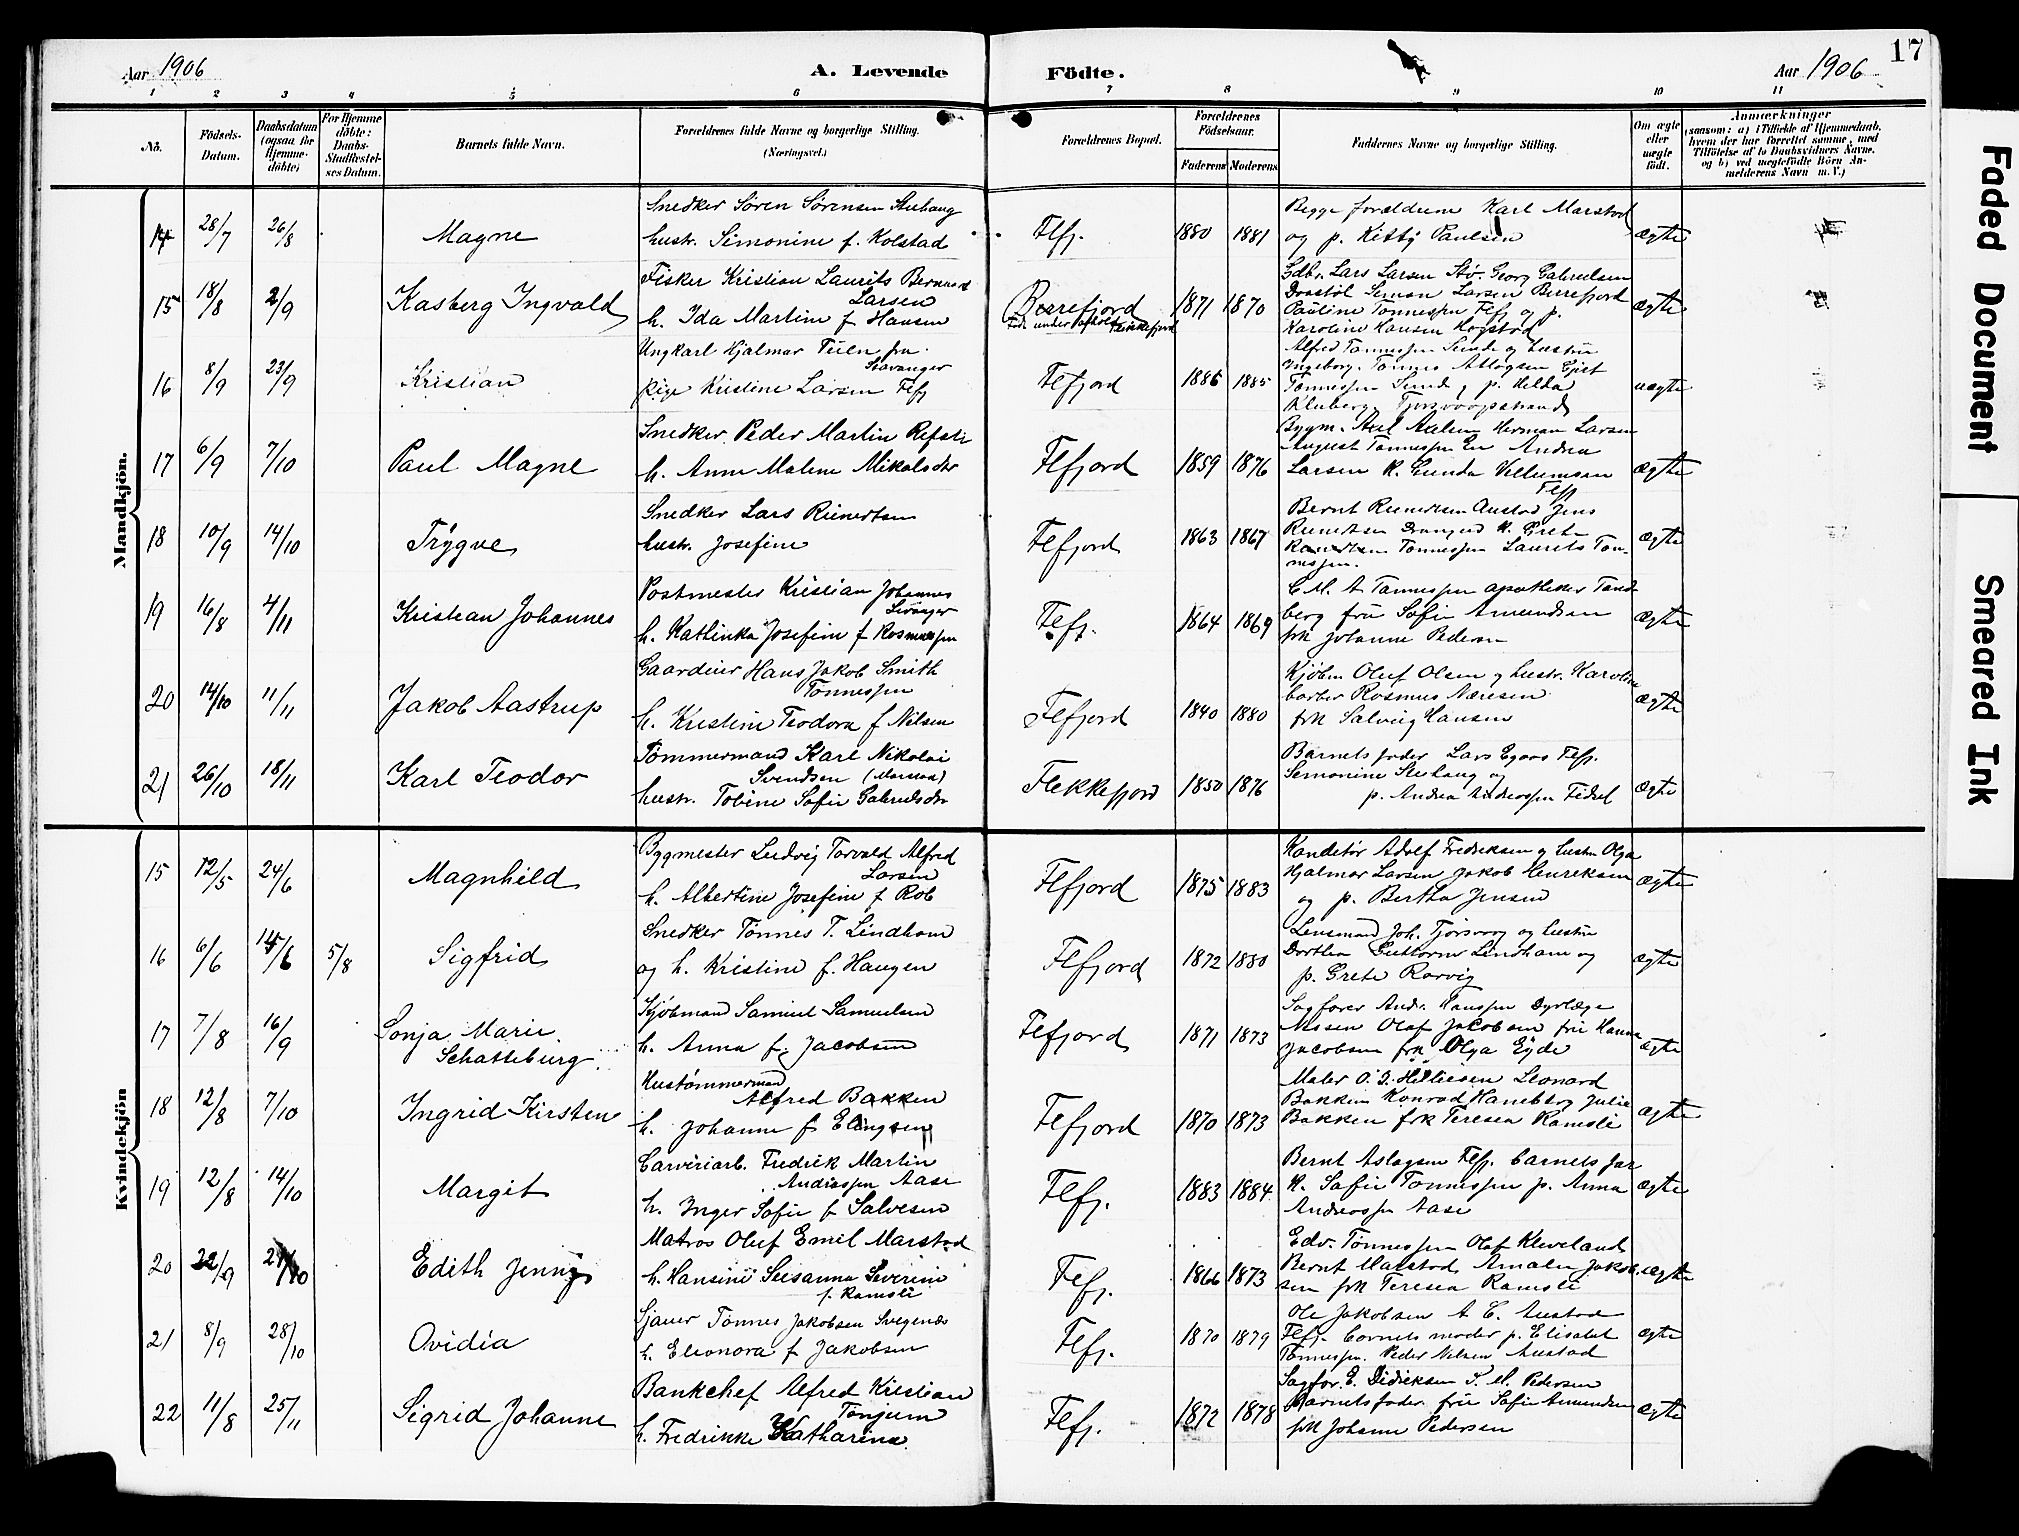 Aar 1906
A. Levende Födte.
Aar 1906
17
1 2 3 4 5 6 7 8 9 10 11
No.
Födsels-Datum.
Daabsdatum (ogsaa for Hjemme-döbte)
For Hjemme döbte: Daabs-Stadfæstel-ses Datum.
Barnets fulde Navn.
Forældrenes fulde Navne og borgerlige Stilling. (Næringsvei.)
Forældrenes Bopæl.
Forældrenes Födselsaar.
Faderens Moderens
Faddernes Navne og borgerlige Stilling.
Om ægte eller uægte födt.
Anmærkninger
(saasom: a) i Tilfælde af Hjemmedaab, hvem der har forrettet samme, med Tilföielse af to Daabsvidners Navne, og b) ved uægtefödte Börn An-melderens Navn m. V.)
Mandkjön.
14 28/7 26/8 Magne
Snedker Sören Sörensen Stuhaug
hustr. Simonine f. Kolstad
Flfj. 1880 1881
Begge forældrene Karl Marstad
og p. Kitty Paulsen
ægte
15 18/8 2/9 Kasberg Ingvald
Fisker Kristian Laurits Bernard
Larsen
h. Ida Martine f Hansen
Berrefjord
1871 1870
Gdbr. Lars Larsen Georg Gabrielsen
Simon Larsen Berrefjord
Pauline Tønnessen Flfj og p.
Karoline Hansen Hogstad
ægte
16 8/9 23/9 Kristian
Ungkarl Hjalmar fra
Stavanger
pige Kristine Larsen Flfj
Flfjord 1886 1885
Alfred Tønnessen Sunde og hustru
Ingeborg, Tønnes Aslagsen
Tønnessen Sunde, p. Hilda
uægte
17 6/9 7/10 Paul Magne
Snedker Peder Martin Refsti
h. Anne Malene Mikalsdtr
Flfjord 1859 1876
Bygm. Axel Herman Larsen
August Tønnessen Andrea
Larsen K. Gunda Villumsen
Flfj
ægte
18 10/9 14/10 Trÿgve
Snedker Lars Reinertsen
hustr. Josefine
Flfjord 1863 1867
Bernt Reinertsen Austad Jens
Reinertsen K. Grete
Tønnessen Laurits Tøn-
nessen.
ægte
19 16/8 4/11 Kristian Johannes
Postmester Kristian Johannes
h. Kathinka Josefine f Rasmussen
Flfj. 1864 1869
C. M. A Tønnessen apotheker Tand
berg fru Sofie Amundsen
frk Johanne Pedersen
ægte
20 14/10 11/11 Jakob Aastrup
Gaardeier Hans Jakob Smith
Tønnessen
h. Kristine Teodora f Nilsen
Flfjord 1840 1880
Kjøbm Oluf Olsen og hustr. Karoline
barber Rasmus
frk Salvig Hansen
ægte
21 26/10 18/11 Karl Teodor
Tømmermand Karl Nikolai
Svendsen
hustr. Tobine Sofie Gabrielsdtr
Flekkefjord 1850 1876
Barnets fader Lars Flfj.
Simonine Stuhaug og
p. Andrea Andreassen
ægte
Kvindekjön
15 12/5 24/6 Magnhild
Bygmester Ludvig Torvald Alfred
Larsen
h. Albertine Josefine f Rob
Flfjord 1875 1883
Konditor Adolf Fredriksen og hustru Olga
Hjalmar Larsen Jakob Henriksen
og p. Bertha Jensen
ægte
16 6/6 15/6 5/8 Sigfrid
Snedker Tønnes T. Lindham
og h. Kristine f. Haugen
Flfjord 1872 1880
Lensmand Joh. Tjørsvaag og hustru
Dorthea Guttorm Lindham og
p. Grete Rørvig
ægte
17 7/8 16/9 Sonja Marie
Schatteburg
Kjøbmand Samuel Samuelsen
h. Anna f. Jacobsen
Flfjord 1871 1873
Sagfører Andr. Hanssen Dyrlæge
Olaf Jakobsen fru Hanna
Jacobsen frk Olga Eyde
ægte
18 12/8 7/10 Ingrid Kirsten
Hustømmermand
Alfred Bakken
h. Johanne f Elingsen
Flfjord 1870 1873
Maler O. J. Leonard
Bakken Konrad Haneberg Julie
Bakken frk Teresea Ramsli
ægte
19 12/8 14/10 Margit
Garveriarb. Fredrik Martin
Andreassen Aase
h. Inger Sofie f Salvesen
Flfj. 1883 1884
Bernt Aslagsen Flfj. barnets far
K. Sofie Tønnessen p. Anna
Andreassen Aase
ægte
20 22/9 Edith Jenny
Matros Oluf Emil Marstad
h. Hansine Susanna Severine
f. Ramsli
Flfj. 1866 1873
Edv. Tønnessen Olaf Kleveland
Bernt Marstad Amalie Jakob-
sen frk Teresea Ramsli
ægte
21 8/9 28/10 Ovidia
Sjauer Tønnes Jakobsen Svegenæs
h. Eleonora f Jakobsen
Flfj. 1870 1879
Ole Jakobsen A. C. Austad
Flfj. barnets moder p. Elisabet
Tønnessen. Peder Nilsen Austad
ægte
22 11/8 25/11 Sigrid Johanne
Bankchef Alfred Kristian
Tonjum
h. Fredrikke Katharina
Flfj. 1872 1878
Sagfør. E. Didriksen P. M. Pedersen
Barnets fader fru Sofie Amundsen
frk Johanne Pedersen
ægte
Faded Document
Smeared Ink